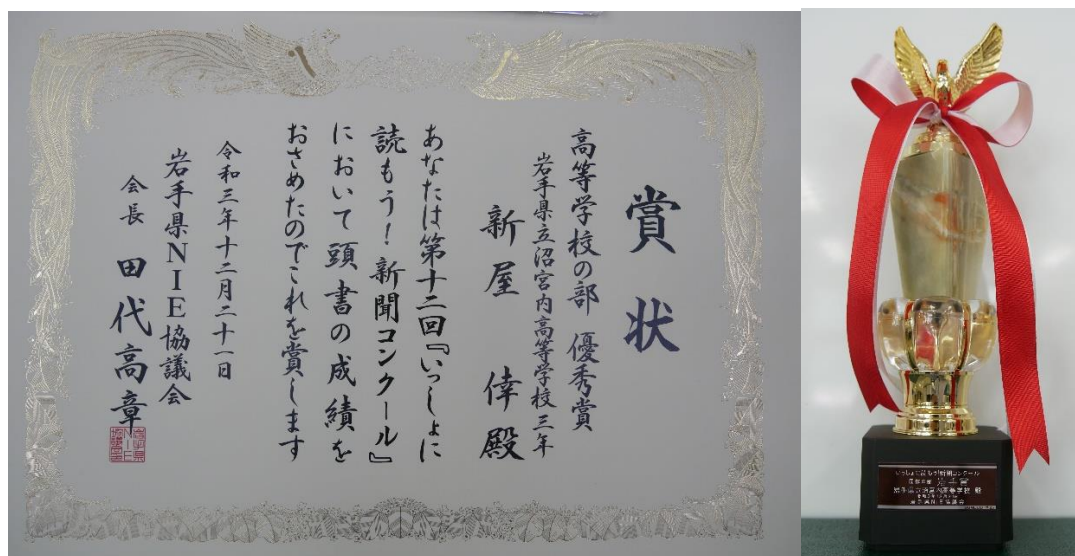 賞状
高等学校の部 優秀賞
岩手県立沼宮内高等学校三年
新屋 倖殿
あなたは第十二回『いっしょに
読もう!新聞コンクール』
において頭書の成績を
おさめたのでこれを賞します
令和三年十二月二十一日
岩手県NIE協議会
会長 田代高章
いっしょに読もう!新聞コンクール
岩手県立沼宮内高等学校 殿
岩手県NIE協議会